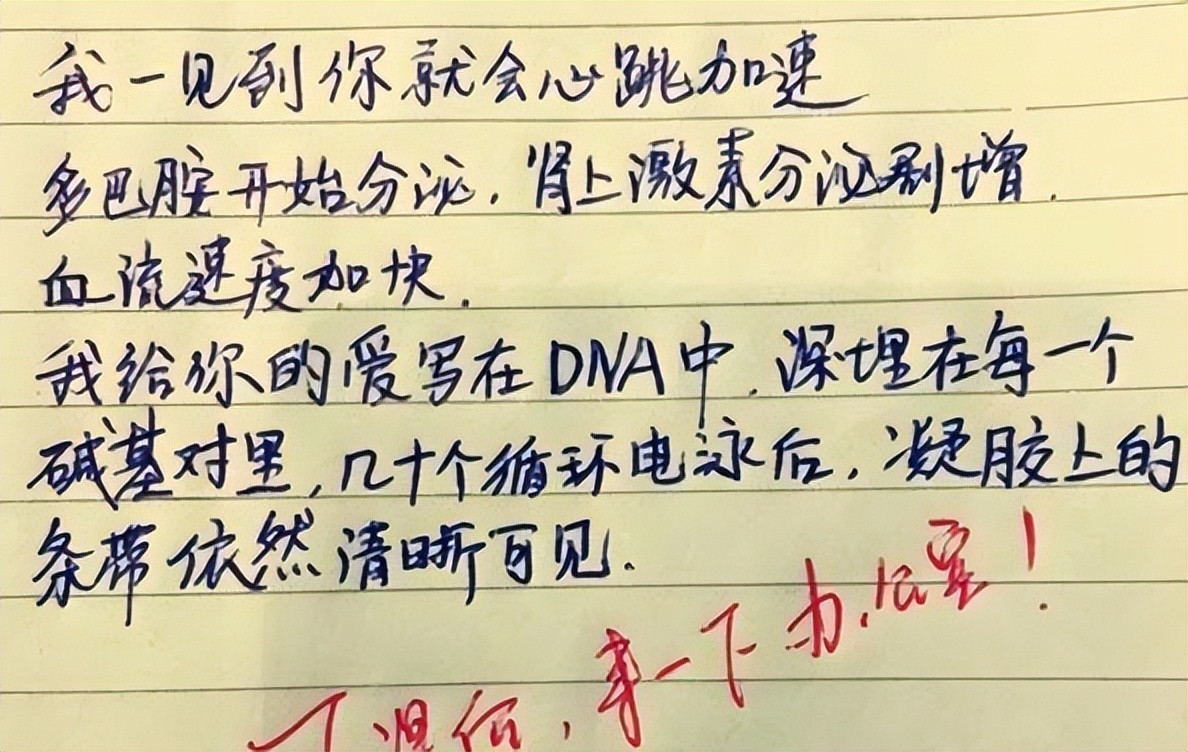 我一见到你就会心跳加速
多巴胺开始分泌，肾上激素分泌剧增.
血流速度加快.
我给你的爱写在DNA中.深埋在每一个
碱基对里,几十个循环电泳后,凝胶上的
条带依然清晰可见.
来一下办公室!